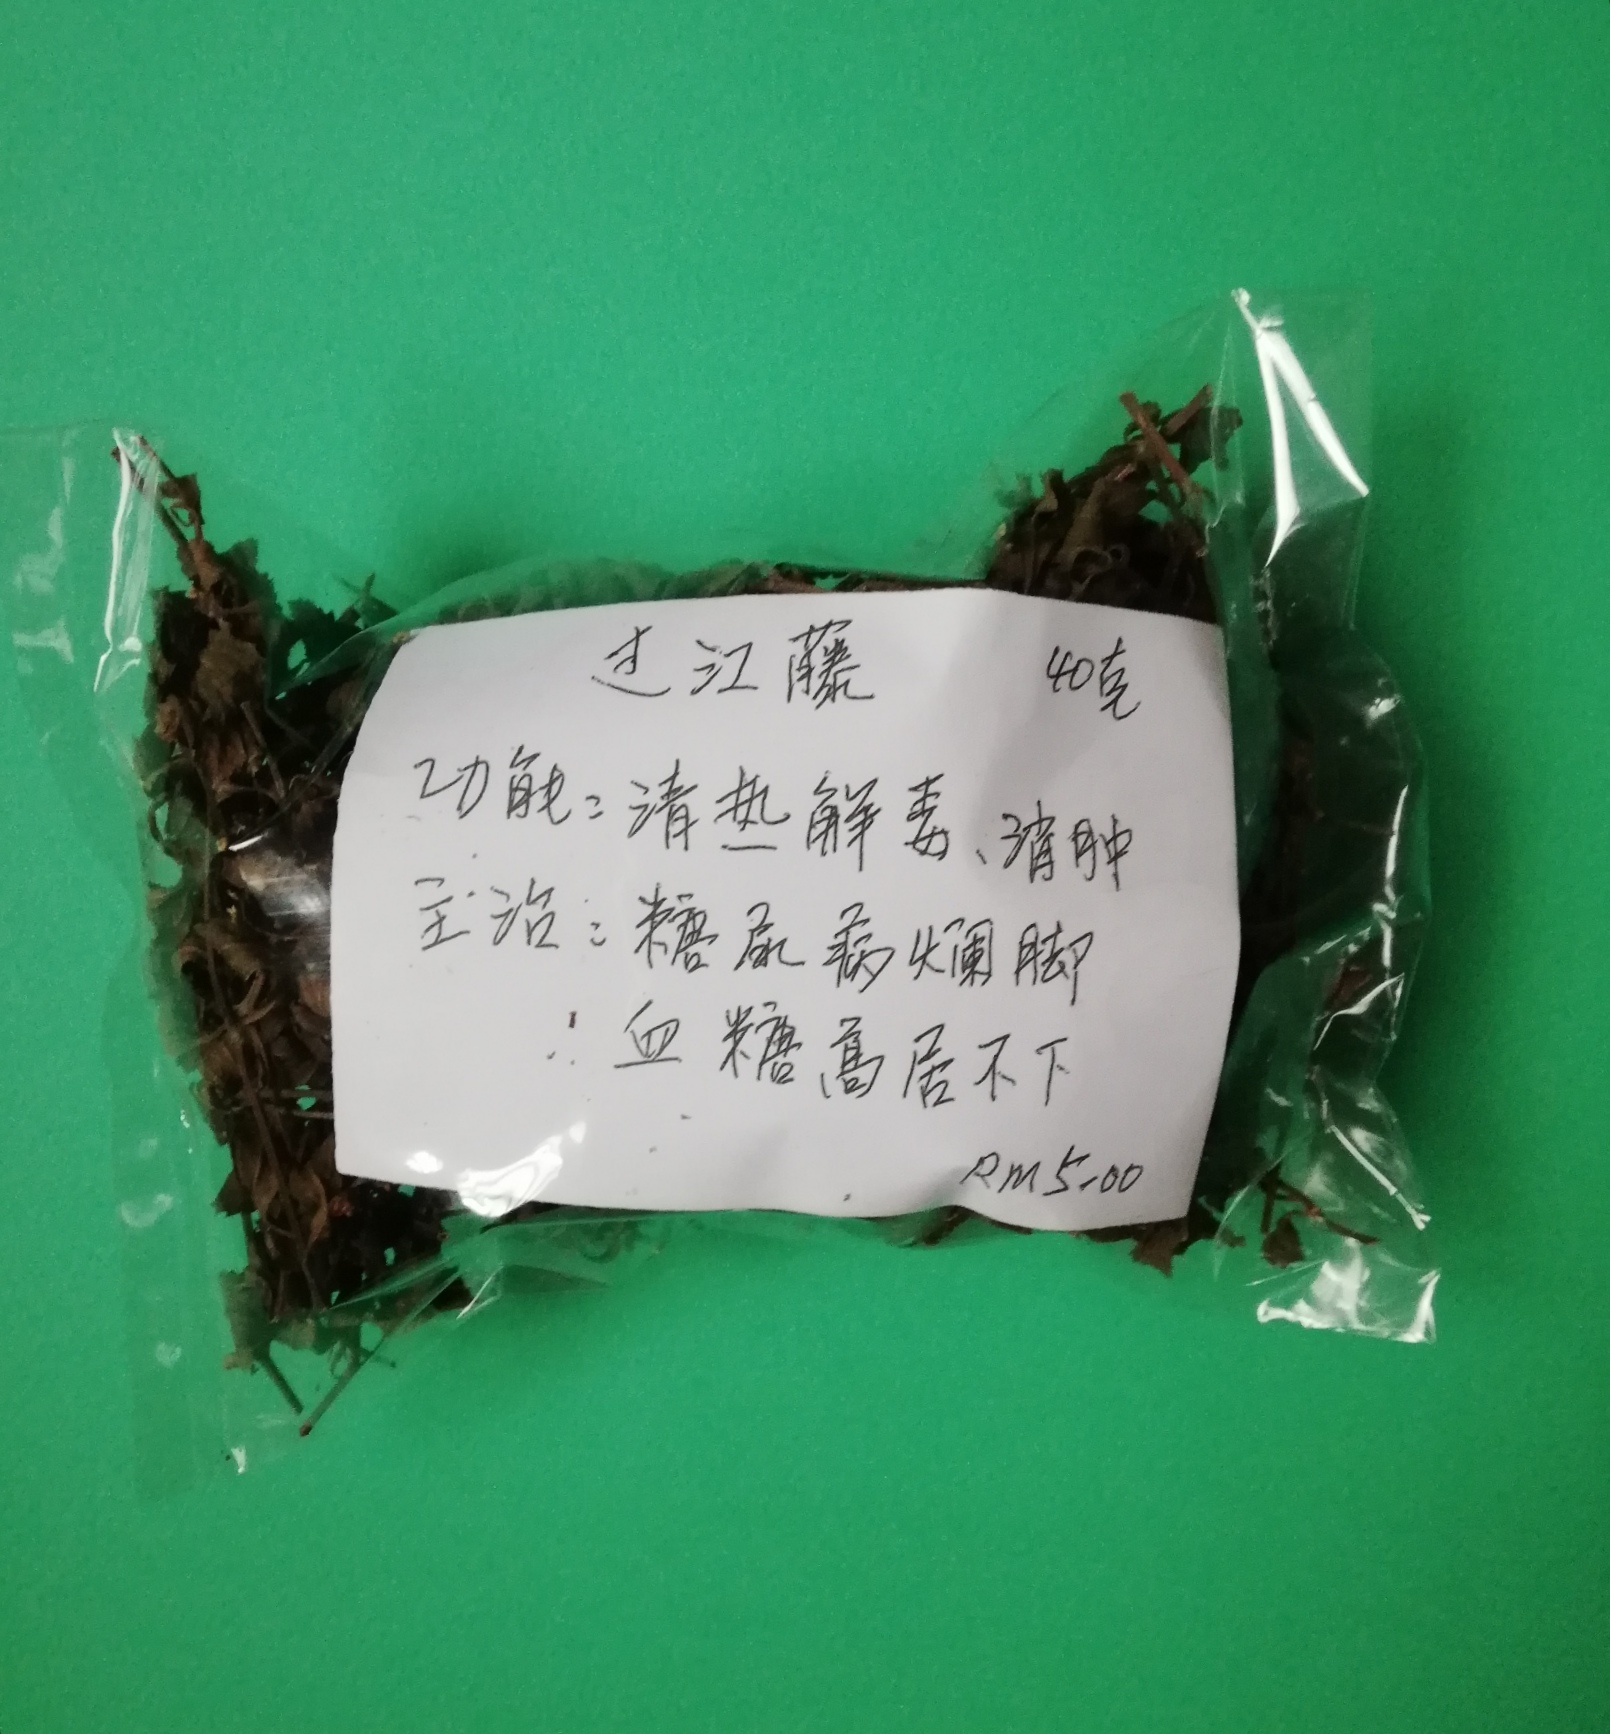 过江藤 40克
功能：清热解毒、消肿
主治：糖尿病烂脚
：血糖高居不下
RM5.00